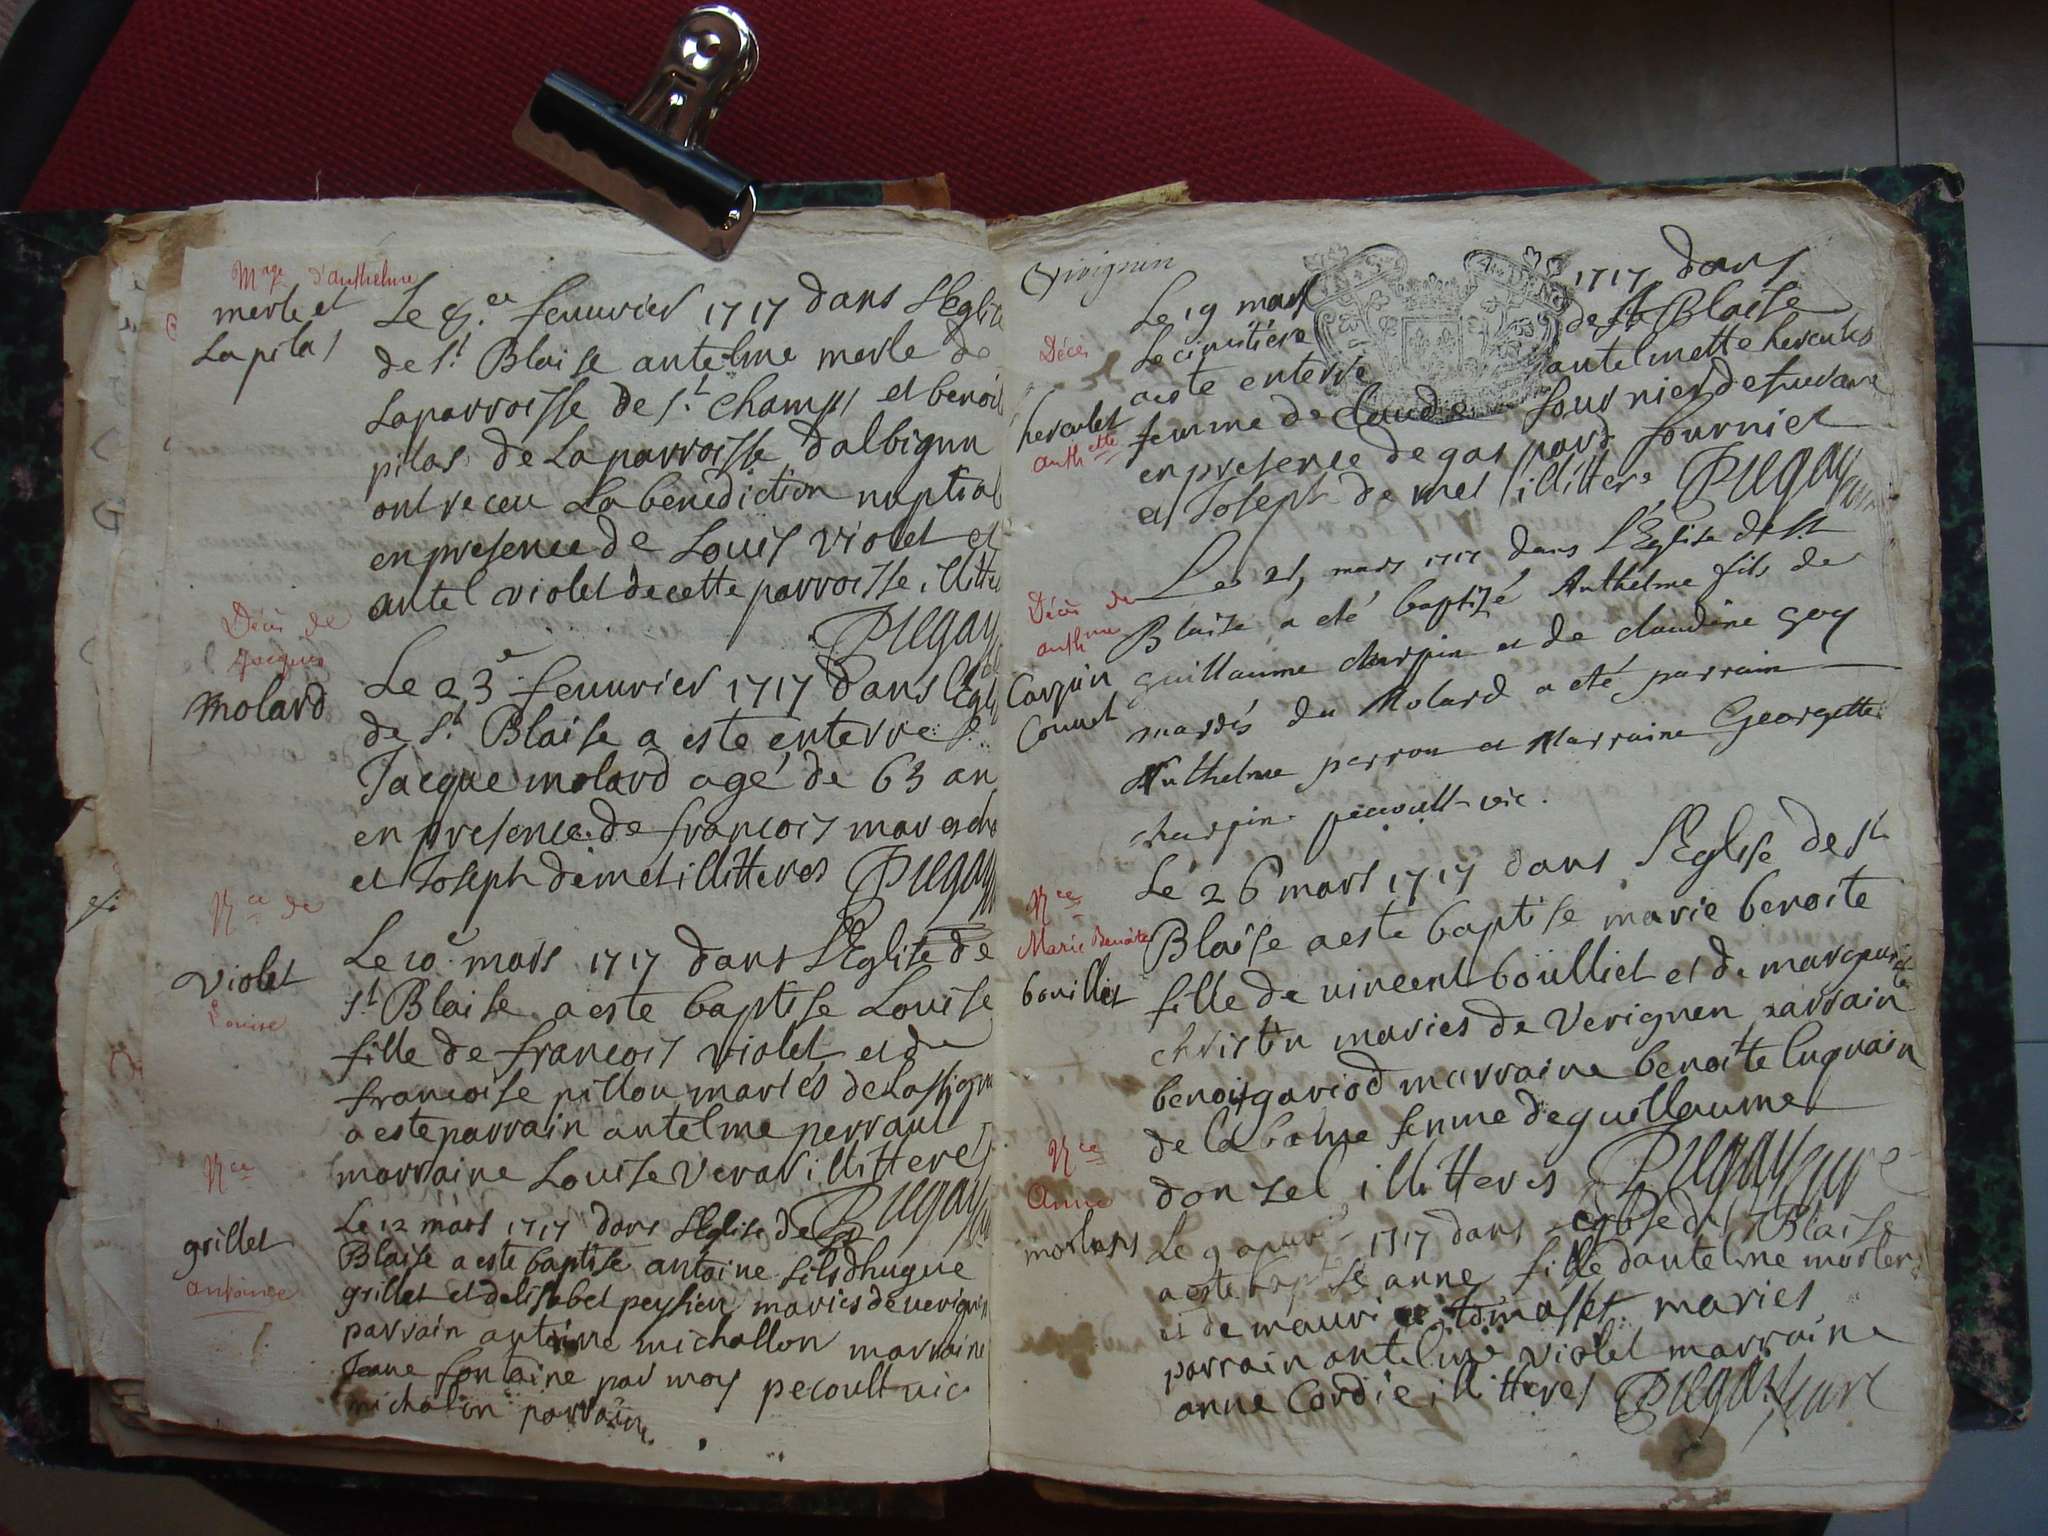 Mage d'anthelme
merle et
Lapilas
Le 8.e feuurier 1717 dans L'Eglis
de St. Blaise antelme merle de
Laparroisse de St. Champs et benoi
pilas de Laparroisse dalbignu
ont receu La benediction nuptial
en presence de Louis violet et
antel violet de cette parroisse illitte
Décès de
Jacques
molard
Le 23.e feuurier 1717 dans L'Egli
de St. Blaise a este enterre
Jacque molard agé de 63 an
en presence de francois
et Joseph demet illitteres
Nce de
violet
Louise
Le 10e mars 1717 dans L'Eglise de
St. Blaise a este baptise Louise
fille de francois violet et de
francoise pillou mariés de
a este parrain antelme perraul
marraine Louise verar illitteres
Nce
grillet
antoine
Le 12 mars 1717 dans L'eglise de St
Blaise a este baptise antoine fils dhugue
grillet et delisabet peysieu maries de verignin
parrain antoine michallon marraine
Jeane fontaine par moy pecoult vic
michalon parrain
Virignin
Le 19 mars 1717 dans
Le cimitière de St Blaise
a este enterre antelmette hercules
femme de claude fournier de
en presence de gaspard fournier
et Joseph de met illittere
Décès
hercules
anthette
Décès de
anthme
Carpin
Connet
Le 21, mars 1717 dans l'Eglise de St
Blaise a eté baptizé Anthelme fils de
guillaume charpin et de claudine goy
mariés du Molard a eté parrain
Anthelme perrou et Marraine Georgette
charpin. pecoult vic.
Nce
Marie Benoite
bouillet
Le 26 mars 1717 dans L'Eglise de St
Blaise a este baptise marie benoite
fille de vincent boulliet et de marguerite
christin maries de Verignen parrain
benoit gariod marraine benoite luquain
de la balme femme de guillaume
donzel illitteres
Nce
Anne
Le 9 apuril 1717 dans eglise de St Blaise
a este baptise anne fille dantelme
et de mauri tomasset maries
parrain antelme violet marraine
anne Cordie illitteres